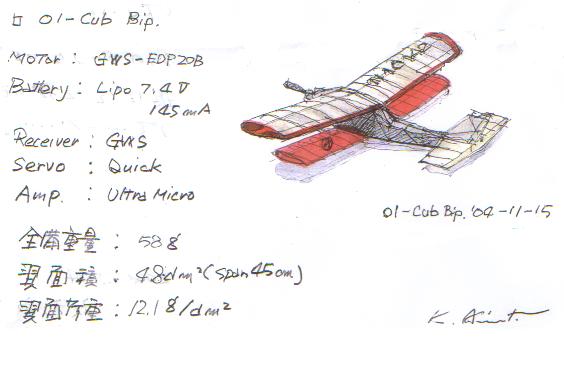 □ 01-Cub Bip.
Motor : GWS-EDP20B
Battery : Lipo 7.4V
145mA
Receiver : GWS
Servo : Quick
Amp. : Ultra Micro
01-Cub Bip. '04-11-15
全備重量 : 58g
翼面積 : 4.8dm²(span45cm)
翼面荷重 : 12.1g/dm²
K.